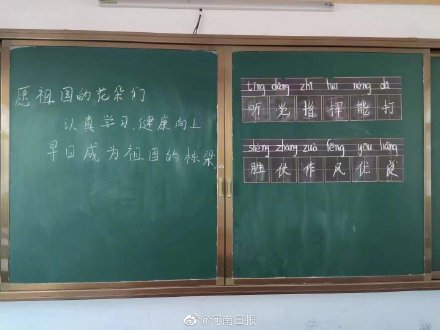 愿祖国的花朵们
认真学习、健康向上
早日成为祖国的栋梁。
tīng dǎng zhǐ huī néng dǎ
听党指挥能打
shèng zhàng zuò fēng yōu liáng
胜仗作风优良
@河南日报